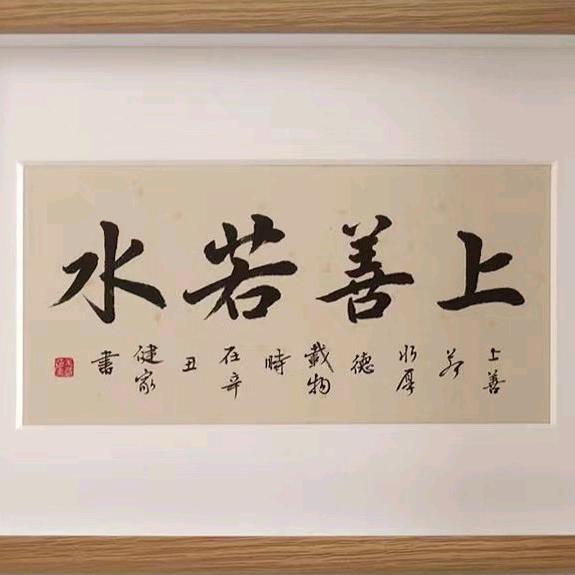 上善若水
上善若水厚德載物時在辛丑健家書